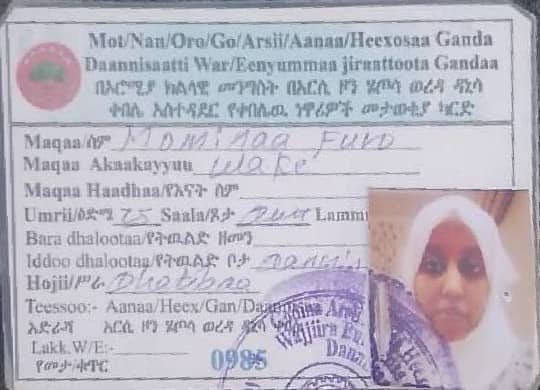 Mot/Nan/Oro/Go/Arsii/Aanaa/Heexosaa Ganda
Daannisaatti War/Eenyummaa jiraattoota Gandaa
በኦሮሚያ ክልላዊ መንግስት በአርሲ ዞን ሄጦሳ ወረዳ ዳኒሳ
ቀበሌ አስተዳደር የቀበሌዉ ነዋሪዎች መታወቂያ ካርድ
Maqaa/ስም Mominaa Furo
Maqaa Akaakayyuu Wake
Maqaa Haadhaa/የእናት ስም
Umrii/ዕድሜ 25 Saala/ጾታ Dur Lammu
Bara dhalootaa/የትዉልድ ዘመን
Iddoo dhalootaa/የትዉልድ ቦታ
Hojii/ሥራ
Teessoo:- Aanaa/Heex/Gan/Daannisa
አድራሻ አርሲ ዞን ሄጦሳ ወረዳ ዳኒሳ
Lakk.W/E:-
የመታ/ቁጥር 0985